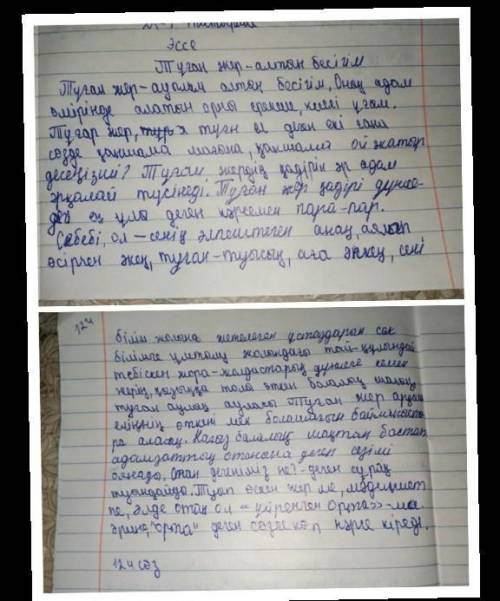 Эссе
Туған жер-алтын бесігім
Туған жер-ауылым алтың бесігім. Оның адам
өмірінде алатын орны ерекше, киелі ұғым.
Туған жер, туған ел деген екі ғана
сөзде қаншама мағына, қаншама ой жатыр
десеңізші? Туған жердің қадірін әр адам
әрқалай түсінеді. Туған жер қадірі дүние-
дегі ең ұлы деген нәрсемен пара-пар.
Себебі, ол - сенің әлпештеген анаң, аялап
өсірген әкең, туған-туысың, аға әпкең, сені
124
білім жолына жетелеген ұстаздарың сәк
білімге ұмтылу жолындағы тай-құлындай
тебіскен жора-жолдастарың дүниеге келген
жерің, қызыққа толы өткен балалық шағың,
туған ауылың ауласы Туған жер арқылы
еліңнің өткені мен болашағын байланыстыра
ра аласың. Нағыз балалық шақтан бастап
адамзаттың отанына деген сезімі
оянады. Отан дегеніміз не?-деген сұрақ
туындайды. Туып өскен жер ме, мәдениет
пе, әлде отан ол - «үйренген орта»-ма
әрине, "орта" деген сөзге көп нәрсе кіреді.
124 сөз